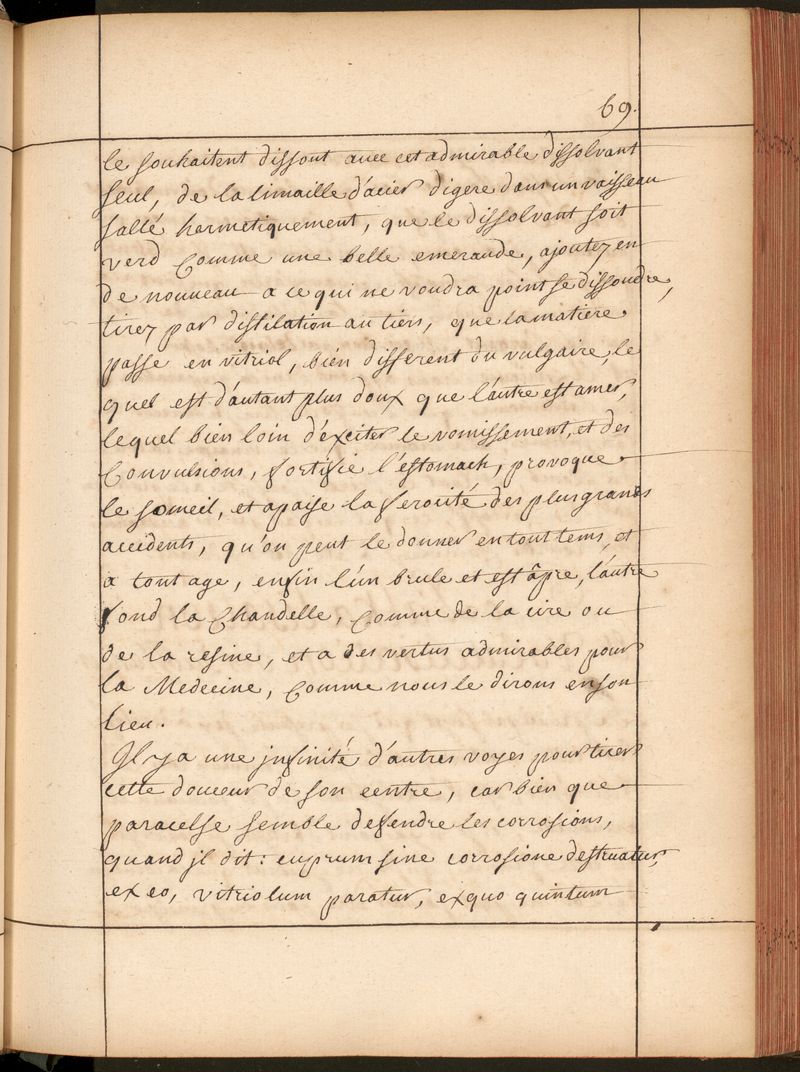 69.
le souhaitent dissout avec cet admirable dissolvant
seul, de la limaille d'acier digere dans un vaisseau
sallé harmetiquement, que le dissolvant soit
verd comme une belle emeraude, ajoutez en
de nouveau a ce qui ne voudra point se dissoudre,
tirez par distilation au tiers, que la matiere
passe en vitriol, bien different du vulgaire, le
quel est d'autant plus doux que l'autre est amer,
lequel bien loin d'exciter le vomissement, et des
Convulsions, fortifie l'estomach, provoque
le someil, et apaise la ferocité des plus grands
accidents, qu'on peut le donner en tout tems, et
a tout age, enfin l'un brule et est âpre, l'autre
fond la Chandelle, comme de la cire ou
de la resine, et a des vertus admirables pour
la Medecine, comme nous le dirons en son
lieu.
Il y a une infinité d'autres voyes pour tirer
cette douceur de son centre, car bien que
paracelse semble defendre les corrosions,
quand jl dit: cuprum sine corrosione destruatur,
ex eo, vitriolum paratur, ex quo quintum